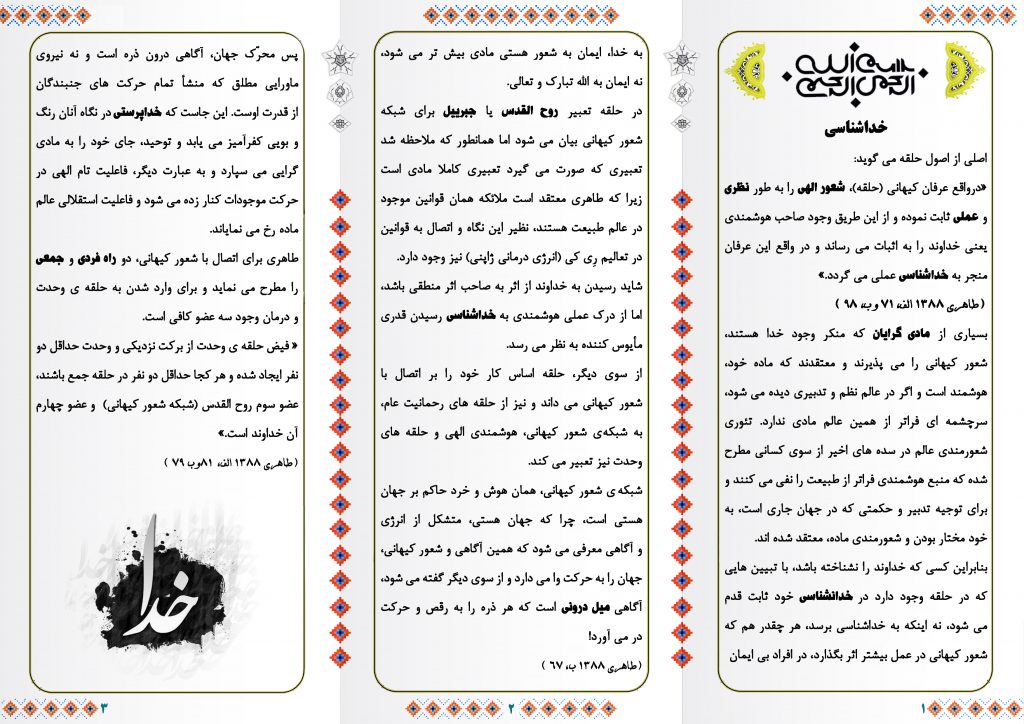 بسم الله الرحمن الرحیم
خداشناسی
اصلی از اصول حلقه می گوید:
«درواقع عرفان کیهانی (حلقه)، شعور الهی را به طور نظری
و عملی ثابت نموده و از این طریق وجود صاحب هوشمندی
یعنی خداوند را به اثبات می رساند و در واقع این عرفان
منجر به خداشناسی عملی می گردد.»
(طاهری ۱۳۸۸ الف، ۷۱ و ب، ۹۸ )
بسیاری از مادی گرایان که منکر وجود خدا هستند،
شعور کیهانی را می پذیرند و معتقدند که ماده خود،
هوشمند است و اگر در عالم نظم و تدبیری دیده می شود،
سرچشمه ای فراتر از همین عالم مادی ندارد. تئوری
شعورمندی عالم در سده های اخیر از سوی کسانی مطرح
شده که منبع هوشمندی فراتر از طبیعت را نفی می کنند و
برای توجیه تدبیر و حکمتی که در جهان جاری است، به
خود مختار بودن و شعورمندی ماده، معتقد شده اند.
بنابراین کسی که خداوند را نشناخته باشد، با تبیین هایی
که در حلقه وجود دارد در خدانشناسی خود ثابت قدم
می شود، نه اینکه به خداشناسی برسد، هر چقدر هم که
شعور کیهانی در عمل بیشتر اثر بگذارد، در افراد بی ایمان
۱
به خدا، ایمان به شعور هستی مادی بیش تر می شود،
نه ایمان به الله تبارک و تعالی.
در حلقه تعبیر روح القدس یا جبرییل برای شبکه
شعور کیهانی بیان می شود اما همانطور که ملاحظه شد
تعبیری که صورت می گیرد تعبیری کاملا مادی است
زیرا که طاهری معتقد است ملائکه همان قوانین موجود
در عالم طبیعت هستند، نظیر این نگاه و اتصال به قوانین
در تعالیم رِی کی (انرژی درمانی ژاپنی) نیز وجود دارد.
شاید رسیدن به خداوند از اثر به صاحب اثر منطقی باشد،
اما از درک عملی هوشمندی به خداشناسی رسیدن قدری
مأیوس کننده به نظر می رسد.
از سوی دیگر، حلقه اساس کار خود را بر اتصال با
شعور کیهانی می داند و نیز از حلقه های رحمانیت عام،
به شبکه‌ی شعور کیهانی، هوشمندی الهی و حلقه های
وحدت نیز تعبیر می کند.
شبکه ی شعور کیهانی، همان هوش و خرد حاکم بر جهان
هستی است، چرا که جهان هستی، متشکل از انرژی
و آگاهی معرفی می شود که همین آگاهی و شعور کیهانی،
جهان را به حرکت وا می دارد و از سوی دیگر گفته می شود،
آگاهی میل درونی است که هر ذره را به رقص و حرکت
در می آورد!
(طاهری ۱۳۸۸ ب، ۶۷ )
۲
پس محرّک جهان، آگاهی درون ذره است و نه نیروی
ماورایی مطلق که منشأ تمام حرکت های جنبندگان
از قدرت اوست. این جاست که خداپرستی در نگاه آنان رنگ
و بویی کفرآمیز می یابد و توحید، جای خود را به مادی
گرایی می سپارد و به عبارت دیگر، فاعلیت تام الهی در
حرکت موجودات کنار زده می شود و فاعلیت استقلالی عالم
ماده رخ می نمایاند.
طاهری برای اتصال با شعور کیهانی، دو راه فردی و جمعی
را مطرح می نماید و برای وارد شدن به حلقه ی وحدت
و درمان وجود سه عضو کافی است.
« فیض حلقه ی وحدت از برکت نزدیکی و وحدت حداقل دو
نفر ایجاد شده و هر کجا حداقل دو نفر در حلقه جمع باشند،
عضو سوم روح القدس (شبکه شعور کیهانی) و عضو چهارم
آن خداوند است.»
(طاهری ۱۳۸۸ الف، ۸۱وب ۷۹ )
خدا
۳